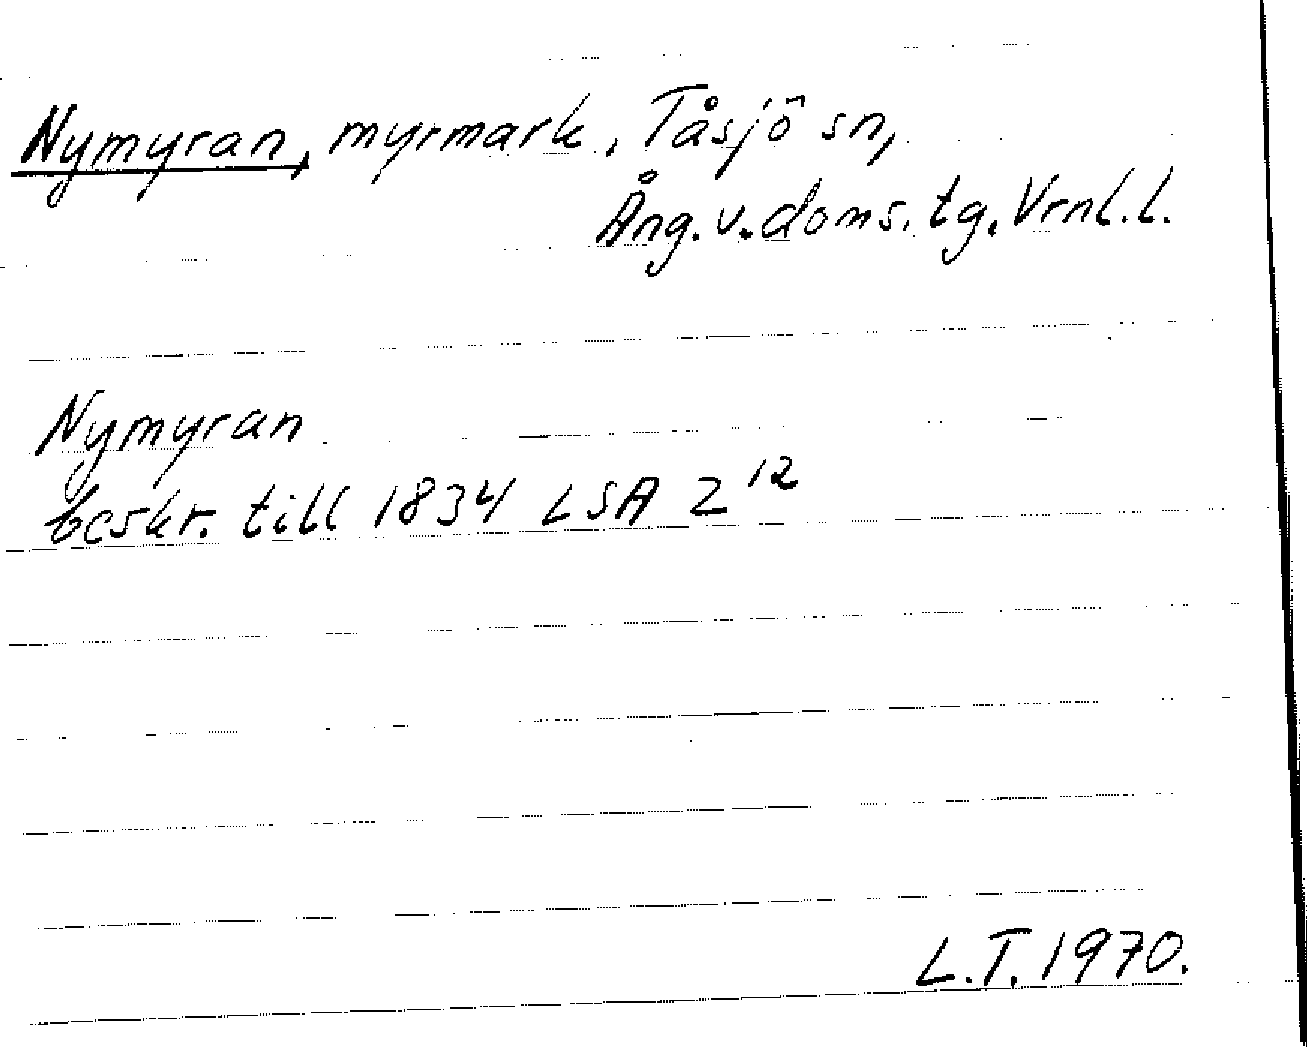 Nymyran, myrmark, Tåsjö sn,
Ång. v. doms. tg, Vrnl. l.
Nymyran
beskr. till 1834 LSA Z¹²
L.T. 1970.